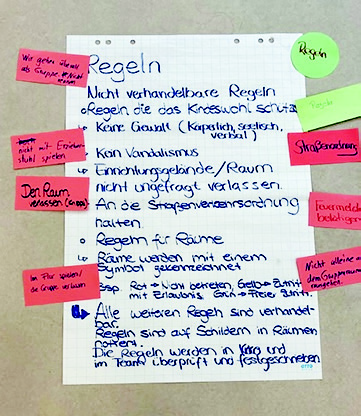 Regeln
Nicht verhandelbare Regeln
Regeln die das Kindeswohl schützen
Keine Gewalt (Körperlich, seelisch,
verbal)
Kein Vandalismus
Einrichtungsgelände/Raum
nicht ungefragt verlassen.
An die Straßenverkehrsordnung
halten.
Regeln für Räume
Räume werden mit einem
Symbol gekennzeichnet
Bsp. Rot → Nicht betreten, Gelb → Zutritt
mit Erlaubnis, Grün → Freier Zutritt.
Alle weiteren Regeln sind verhandel-
bar.
Regeln sind auf Schildern in Räumen
notiert.
Die Regeln werden in
im Team überprüft und festgeschrieben
Wir gehen überall
als Gruppe
nicht mit
stuhl spielen
Den Raum
verlassen (Gruppe)
Im Flur spielen/
die Gruppe verlassen
Regeln
Regeln
Straßenordnung
Feuermelder
betätigen
Nicht alleine aus
dem Gruppenraum